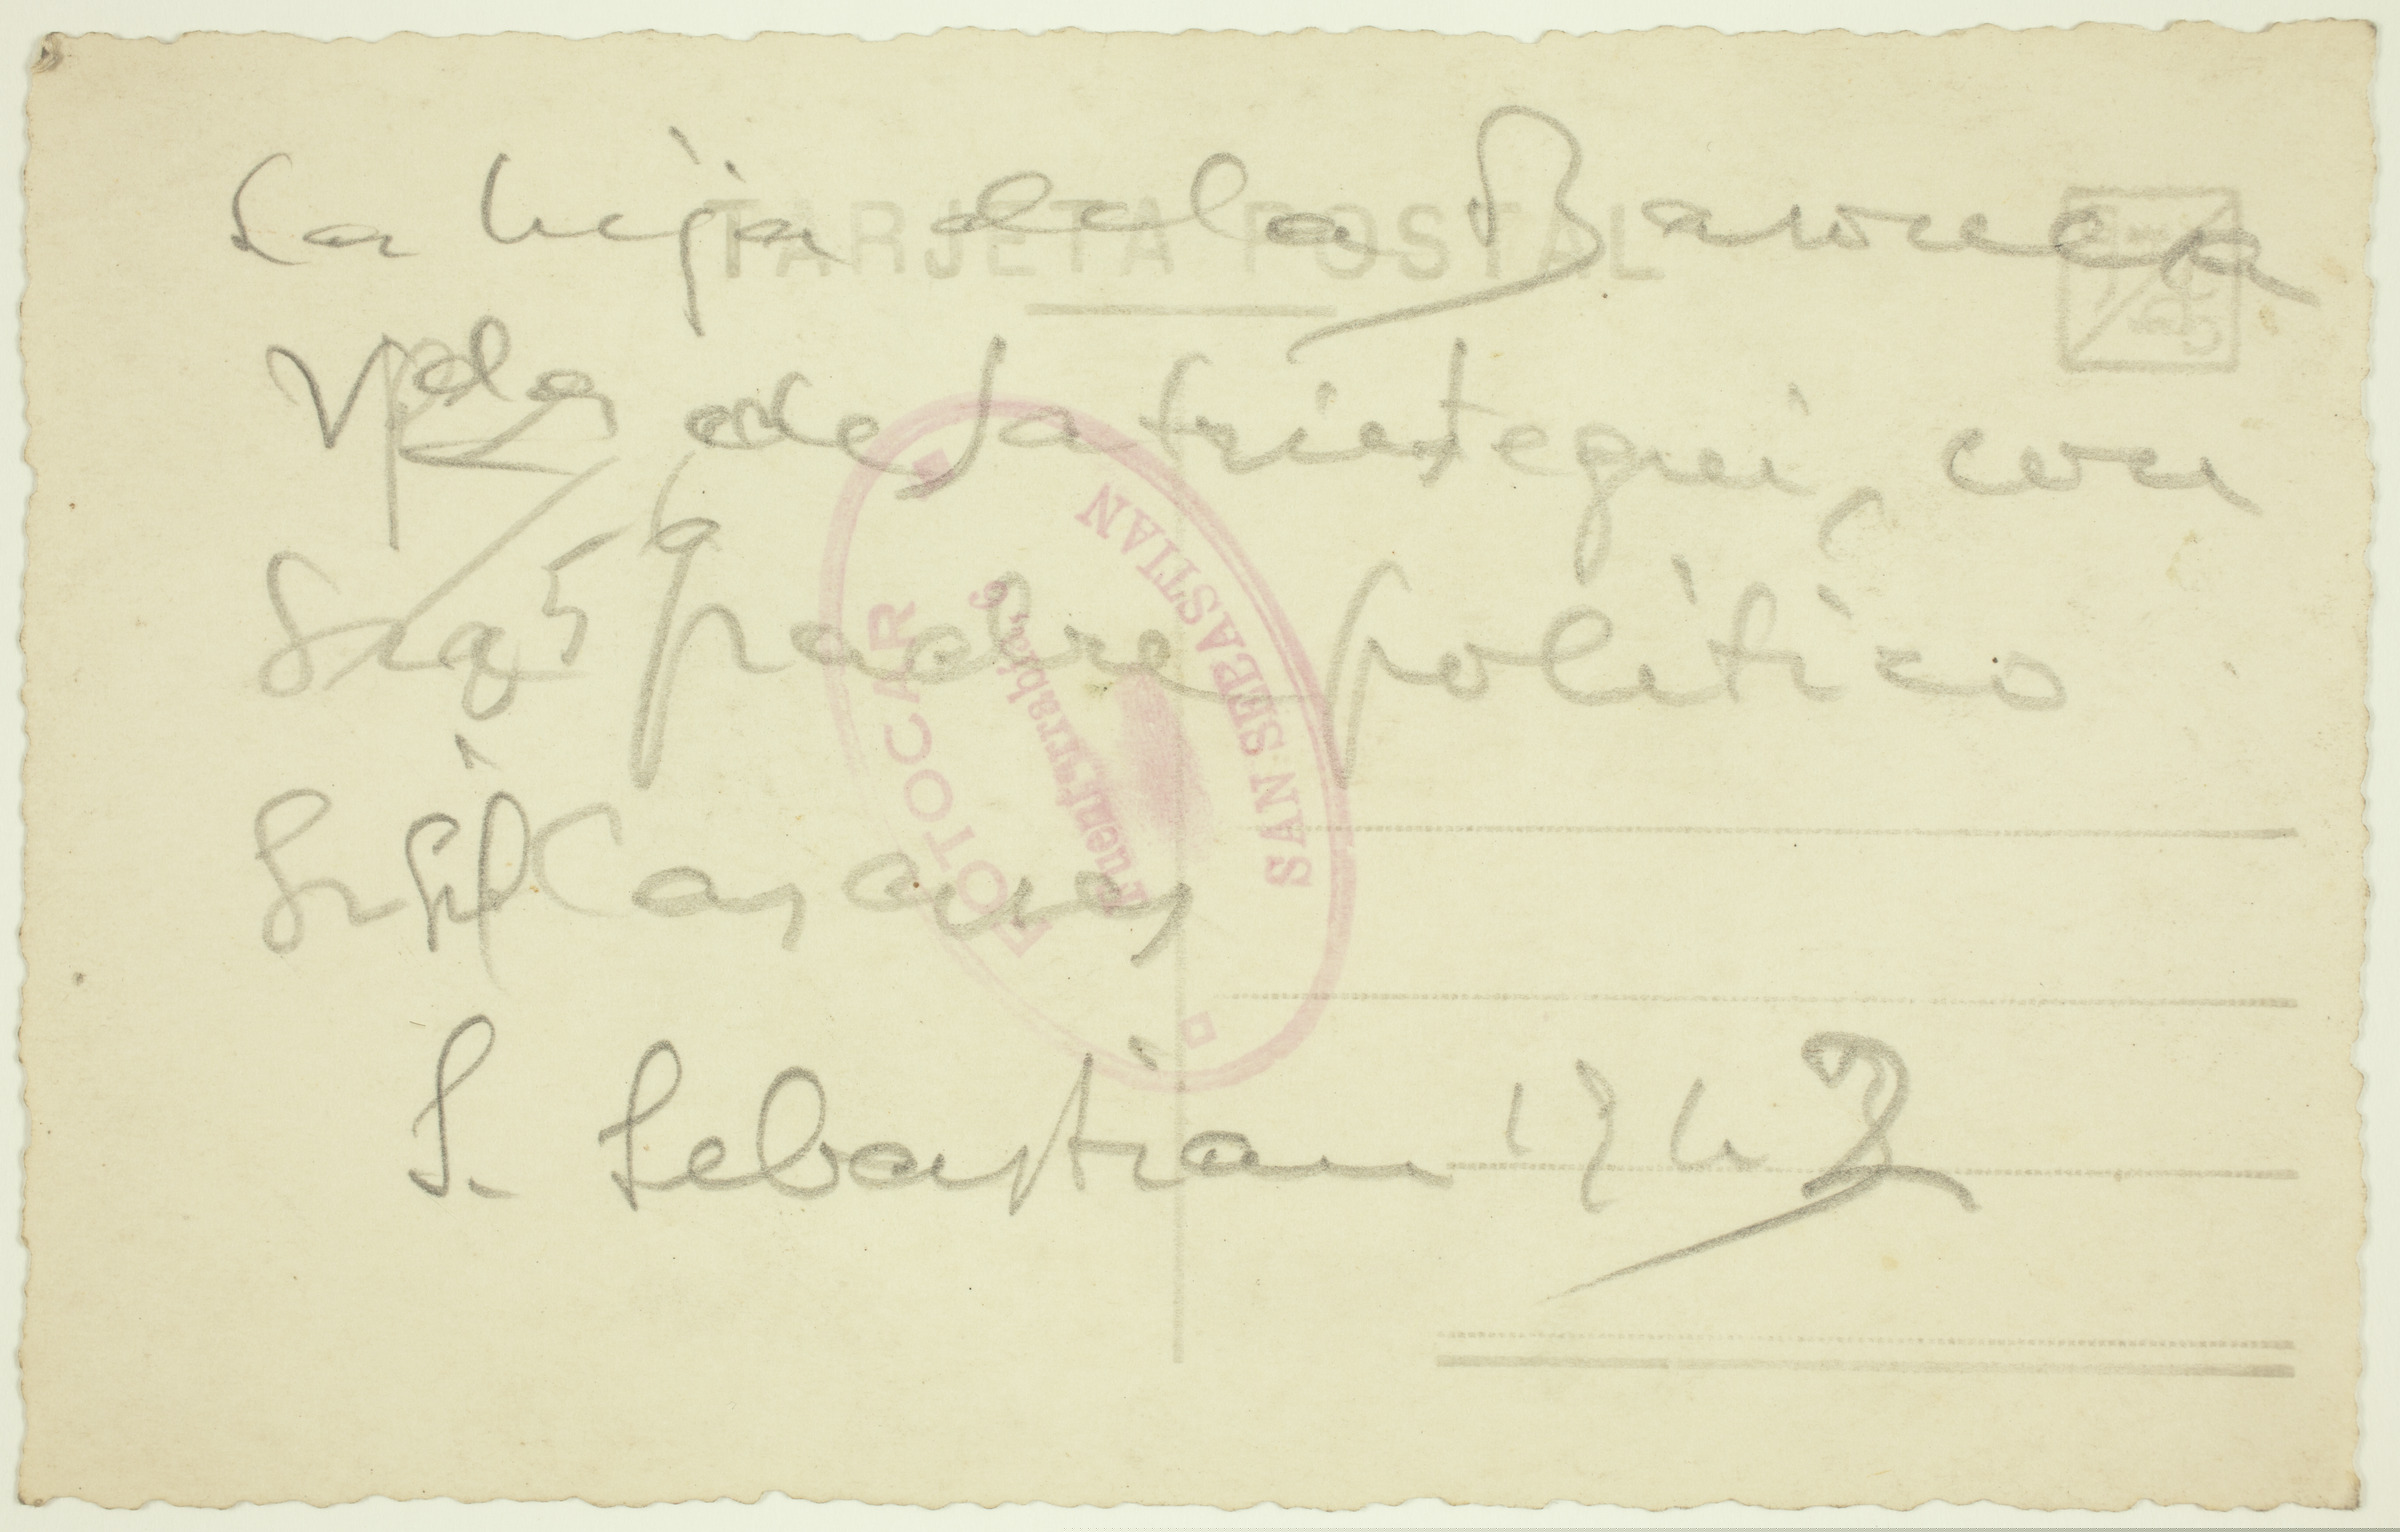 La hija de la Baronesa
Vda de Satrústegui, con
su padre político
Sr Gil Casares
S. Sebastian 1942
TARJETA POSTAL
FOTOCAR
Fuenterrabia, 6
SAN SEBASTIAN